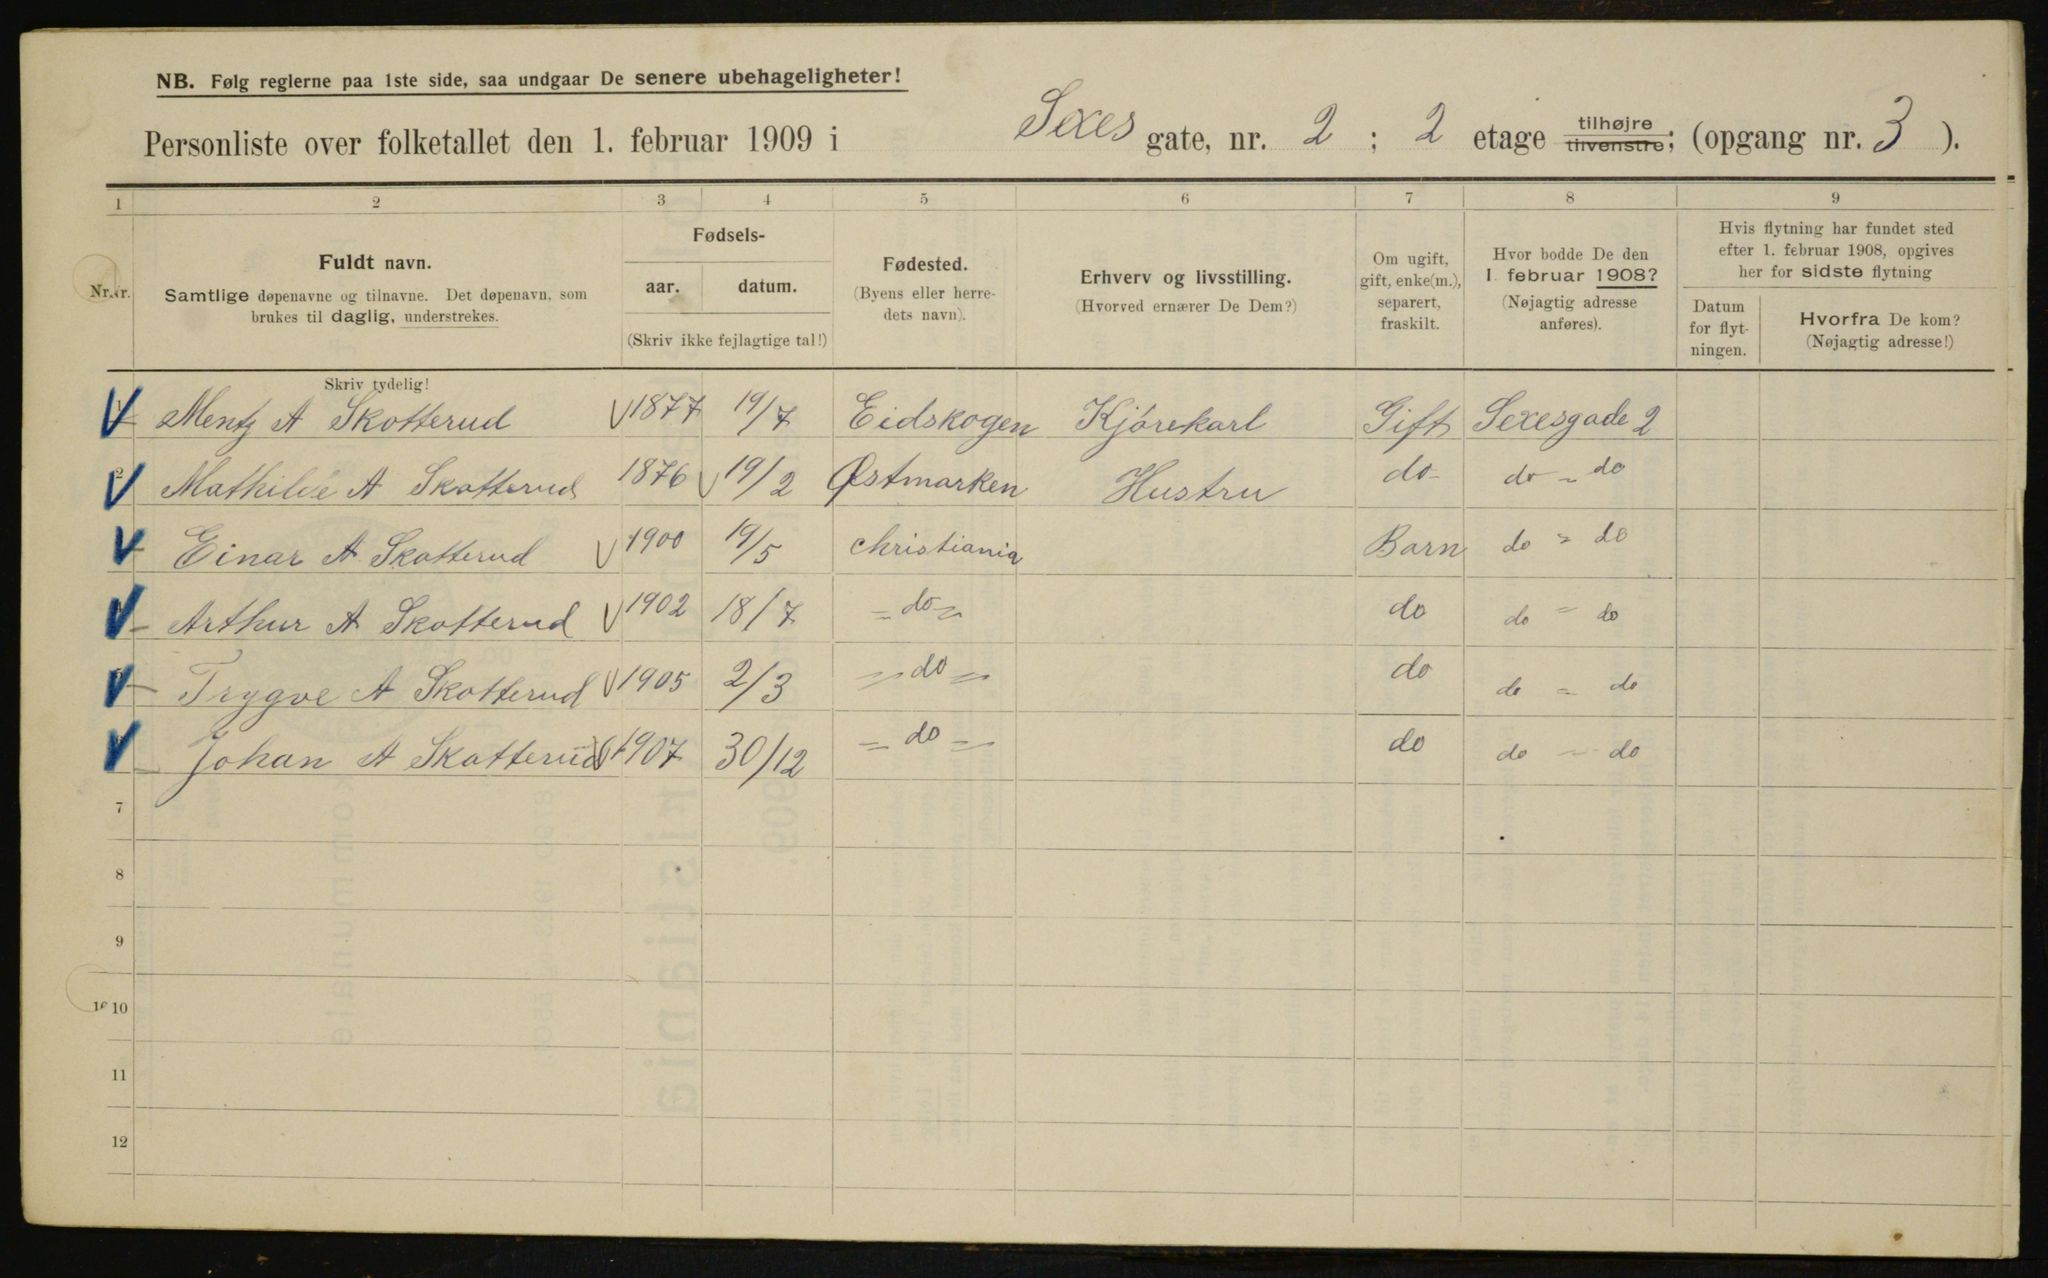 NB. Følg reglerne paa 1ste side, saa undgaar De senere ubehageligheter!
Personliste over folketallet den 1. februar 1909 i Sexes gate, nr. 2 ; 2 etage tilhøjre tilvenstre; (opgang nr. 3 ).
1 2 3 4 5 6 7 8 9
Nr. Fuldt navn. Samtlige døpenavne og tilnavne. Det døpenavn, som brukes til daglig, understrekes.
Fødsels- aar. datum. (Skriv ikke fejlagtige tal!)
Fødested. (Byens eller herredets navn).
Erhverv og livsstilling. (Hvorved ernærer De Dem?)
Om ugift, gift, enke(m.), separert, fraskilt.
Hvor bodde De den 1. februar 1908? (Nøjagtig adresse anføres).
Hvis flytning har fundet sted efter 1. februar 1908, opgives her for sidste flytning
Datum for flytningen. Hvorfra De kom? (Nøjagtig adresse!)
Skriv tydelig!
1 Mentz A Skotterud 1877 19/7 Eidskogen Kjørekarl Gift Sexesgade 2
2 Mathilde A Skotterud 1876 19/2 Østmarken Hustru do - do - do
Einar A Skotterud 1900 19/5 Christiania Barn do = do
Arthur A Skotterud 1902 18/7 = do = do do = do
5 Trygve A Skotterud 1905 2/3 = do = do do = do
Johan A Skotterud 1907 30/12 = do = do do - do
7
8
9
10 10
11
12